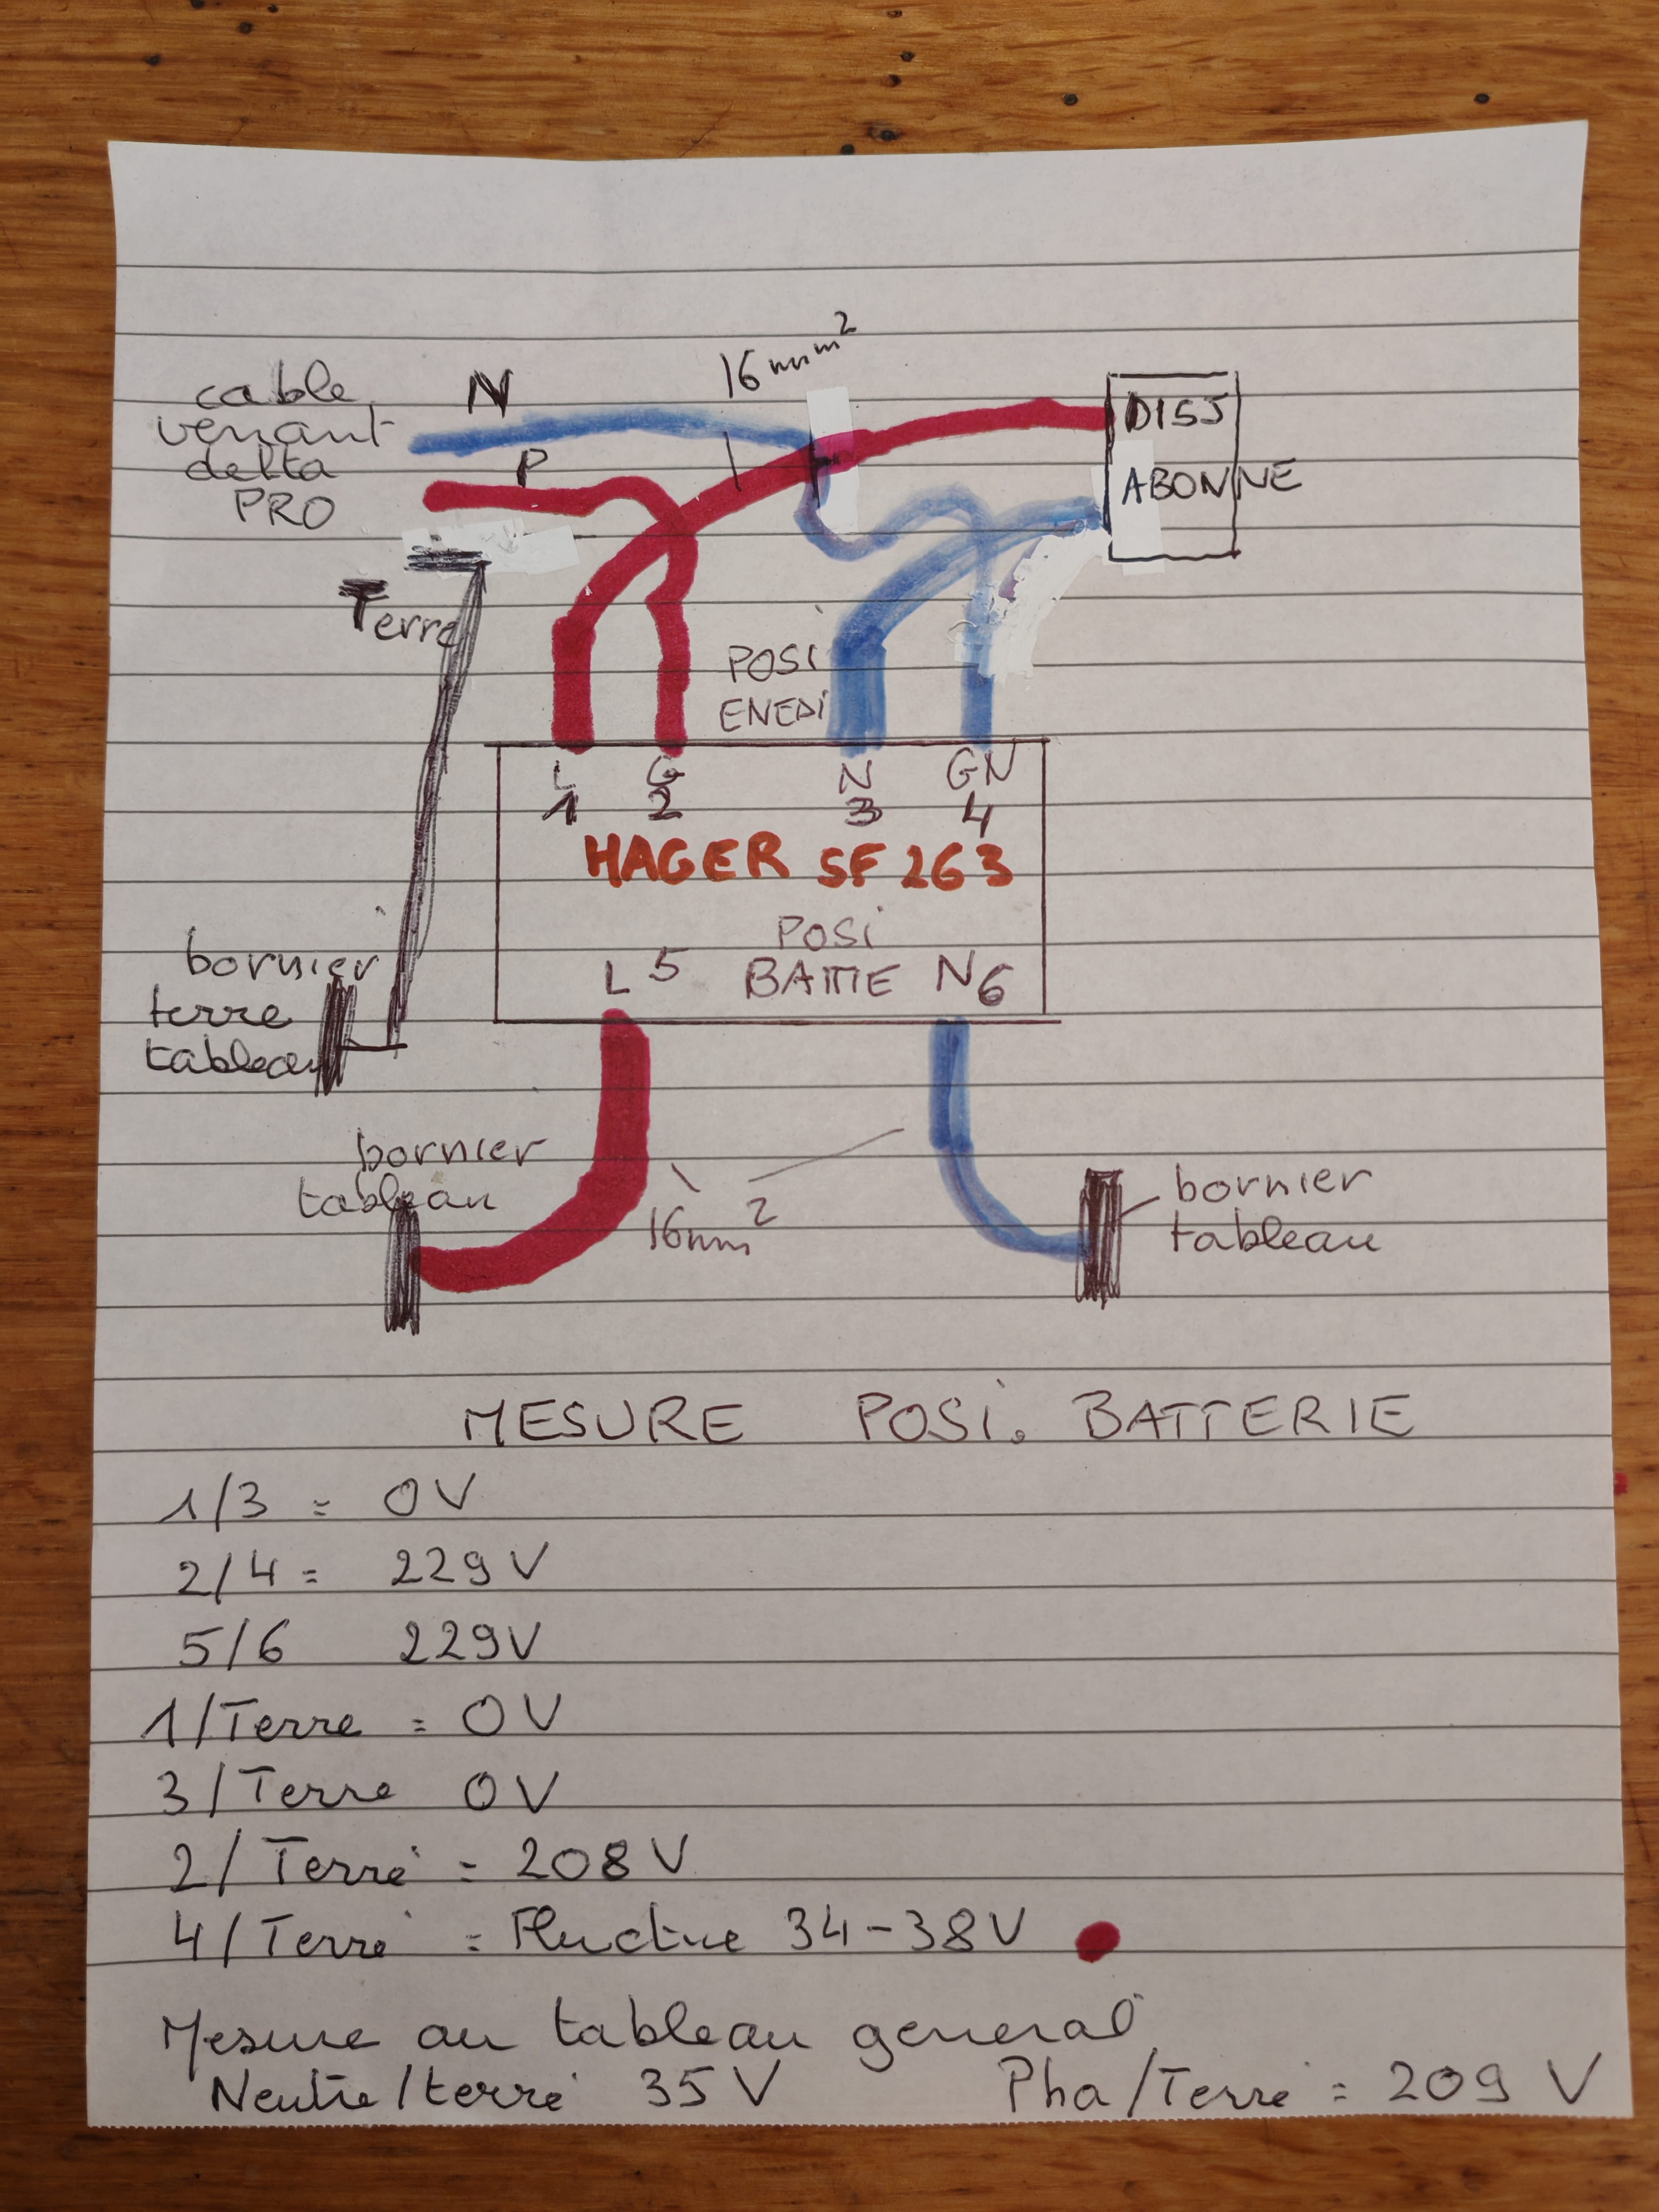 16mm²
cable
venant
delta
PRO
N
P
DISJ
ABONNE
Terre
POSI
ENEDI
L G N GN
1 2 3 4
HAGER SF 263
POSI
BATTIE
L 5
N 6
bornier
terre
tableau
bornier
tableau
16mm²
bornier
tableau
MESURE POSI. BATTERIE
1/3 = 0V
2/4 = 229V
5/6 229V
1/Terre = 0V
3/Terre 0V
2/Terre = 208V
4/Terre = Fluctue 34-38V
Mesure au tableau general
Neutre/terre 35V Pha/Terre = 209 V